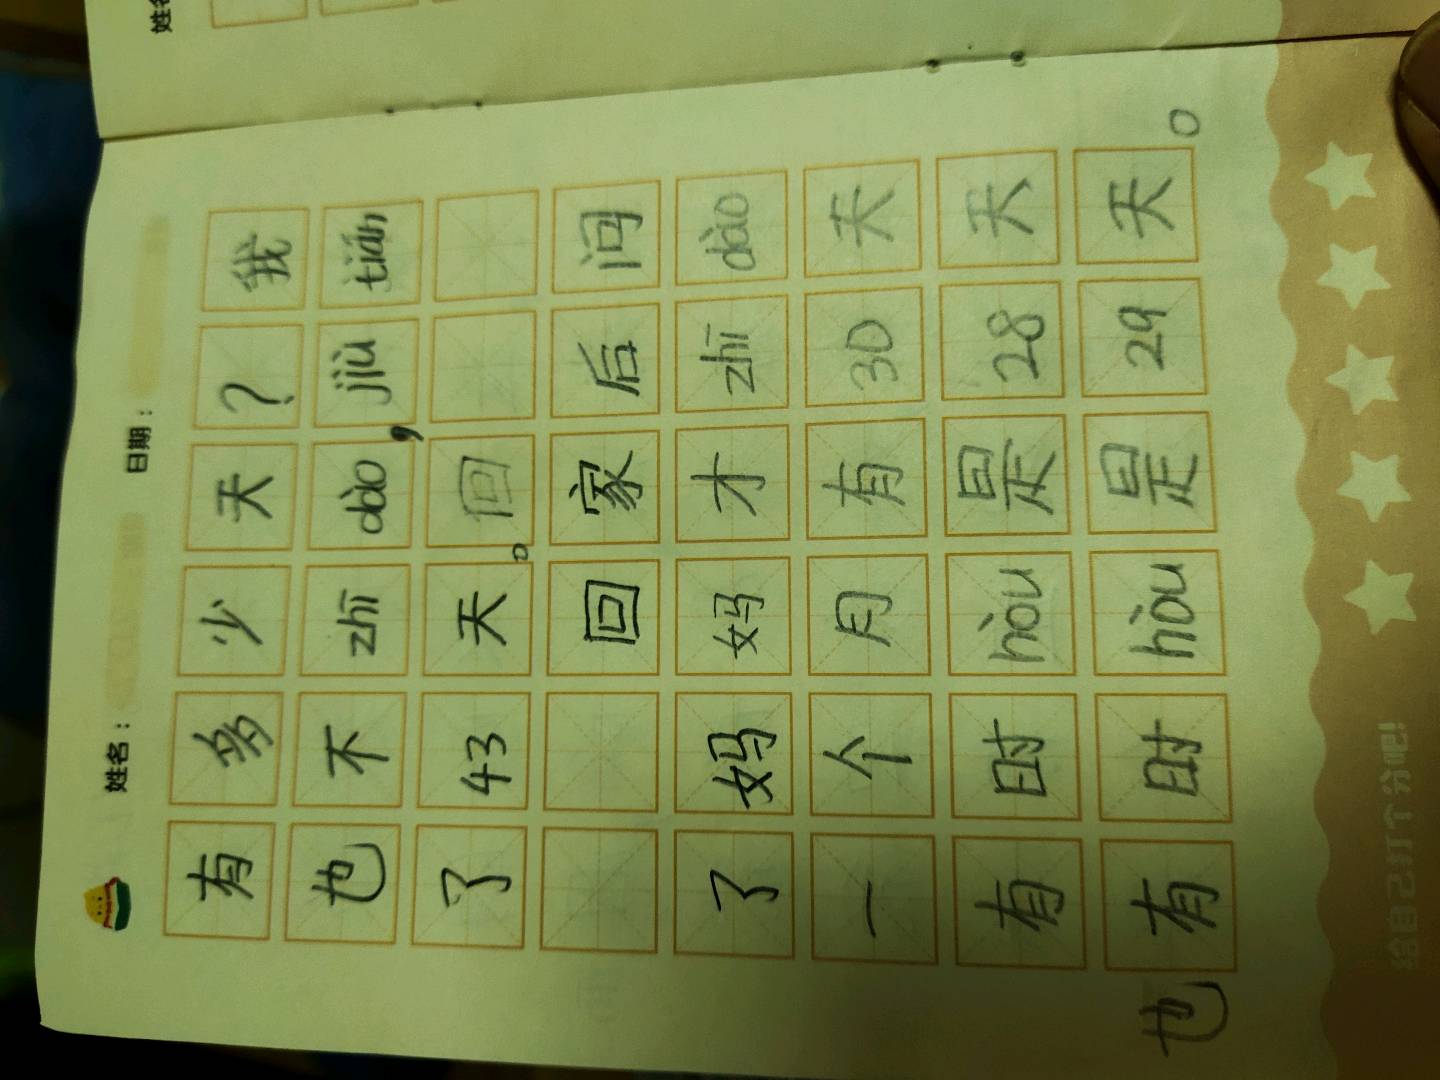 姓名：　日期：
有多少天？我
也不zhīdào，jiùtián
了43天。回
回家后问
了妈妈才zhīdào
一个月有30天
有时hòu是28天
也有时hòu是29天。
给自己打个分吧!
姓名